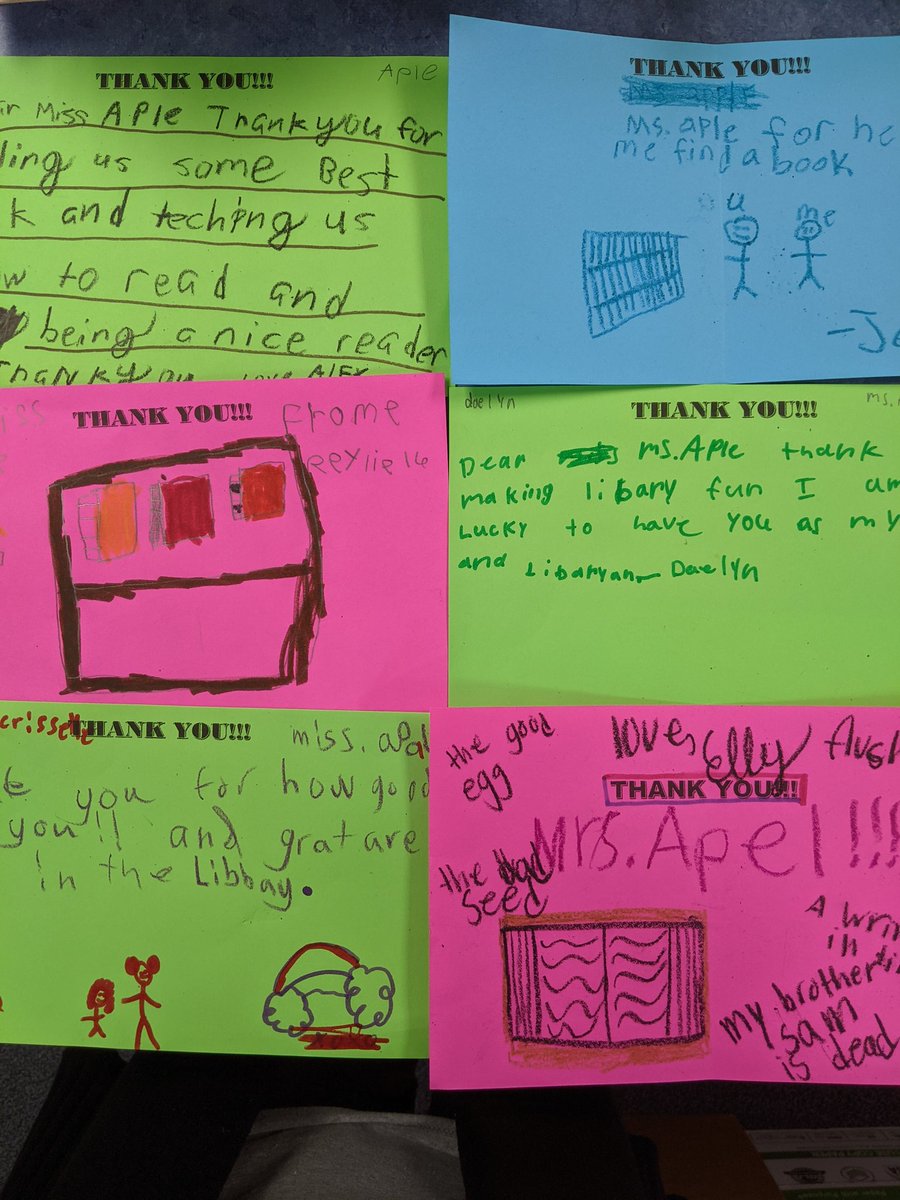 THANK YOU!!!
Aple
ar Miss APle Thank you for
ding us some Best
k and teching us
w to read and
being a nice reader
Thank you love Alex
THANK YOU!!!
Ms. aple for he
me find a book
u
me
-Je
iss
THANK YOU!!!
Frome
daelyn
THANK YOU!!!
ms.
Dear ms. APle thank
making libary fun I am
Lucky to have you as my
and Libaryan Daelyn
crissette
THANK YOU!!!
miss. apal
you for how good
you!! and grat are
in the Libbay.
the good
egg
love, Elly
THANK YOU!!!
Mrs. Apel!!!
the bad
seed
A wrin
in
my brother
sam
is dead